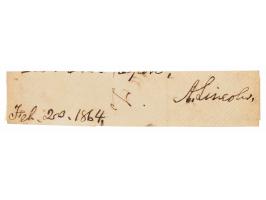 A. Lincoln.
Feb. 20. 1864,